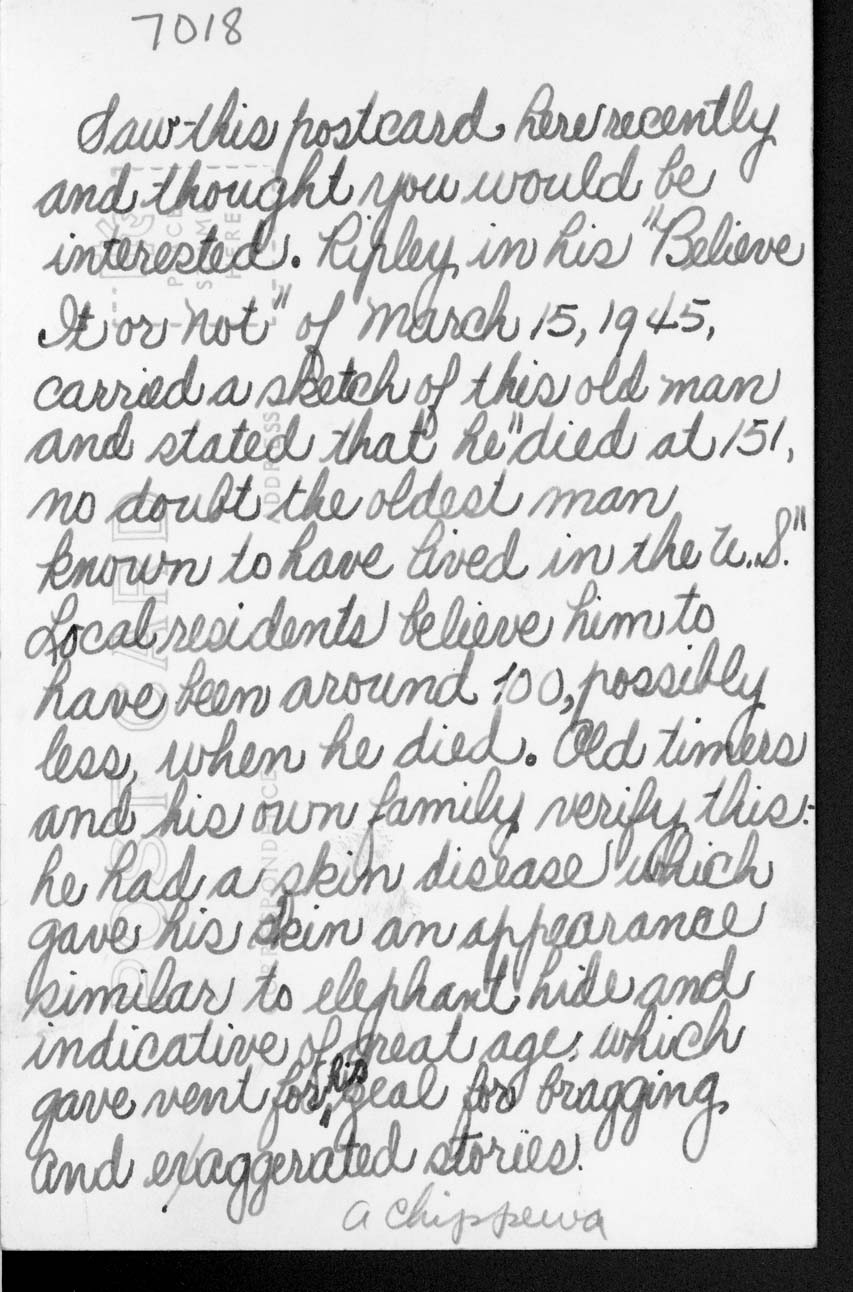 7018
Saw this postcard here recently
and thought you would be
interested. Ripley in his "Believe
It or not" of March 15, 1945,
carried a sketch of this old man
and stated that he "died at 151,
no doubt the oldest man
known to have lived in the U.S."
Local residents believe him to
have been around 100, possibly
less, when he died. Old timers
and his own family verify this:
he had a skin disease which
gave his skin an appearance
similar to elephant hide and
indicative of great age: which
gave vent for his zeal for bragging
and exaggerated stories.
a chippewa
PLACE
STAMP
HERE
POST CARD
ADDRESS
CORRESPONDENCE